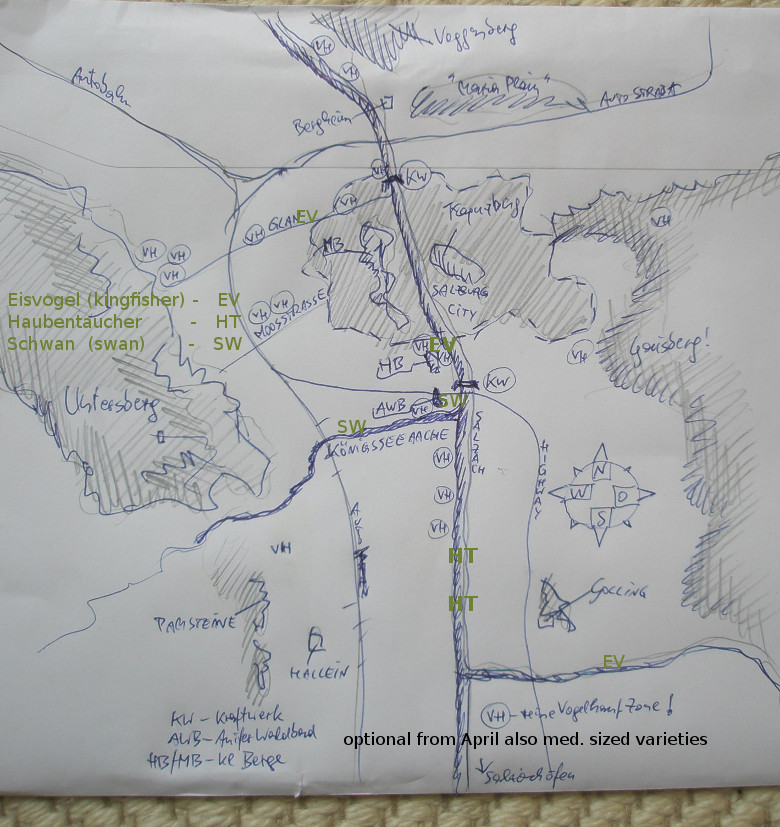 Autobahn
VH
VH
"Maria Plain"
AUTOSTRADA
Bergheim
VH
KW
VH
GLAN
EV
VH
VH
VH
VH
MB
Kapuzberg
SALZBURG
CITY
VH
Eisvogel (kingfisher) - EV
Haubentaucher - HT
Schwan (swan) - SW
VH
VH
MOOSSTRASSE
VH
EV
VH
HB
VH
Gaisberg!
KW
Untersberg
AWB
VH
SW
SW
KÖNIGSSEEACHE
SALZACH
HIGHWAY
VH
VH
VH
N
W
O
S
VH
HT
HT
GOLLING
HALLEIN
EV
KW - Kraftwerk
AWB - Anifer Waldbad
HB/MB - kl Berge
VH
optional from April also med. sized varieties